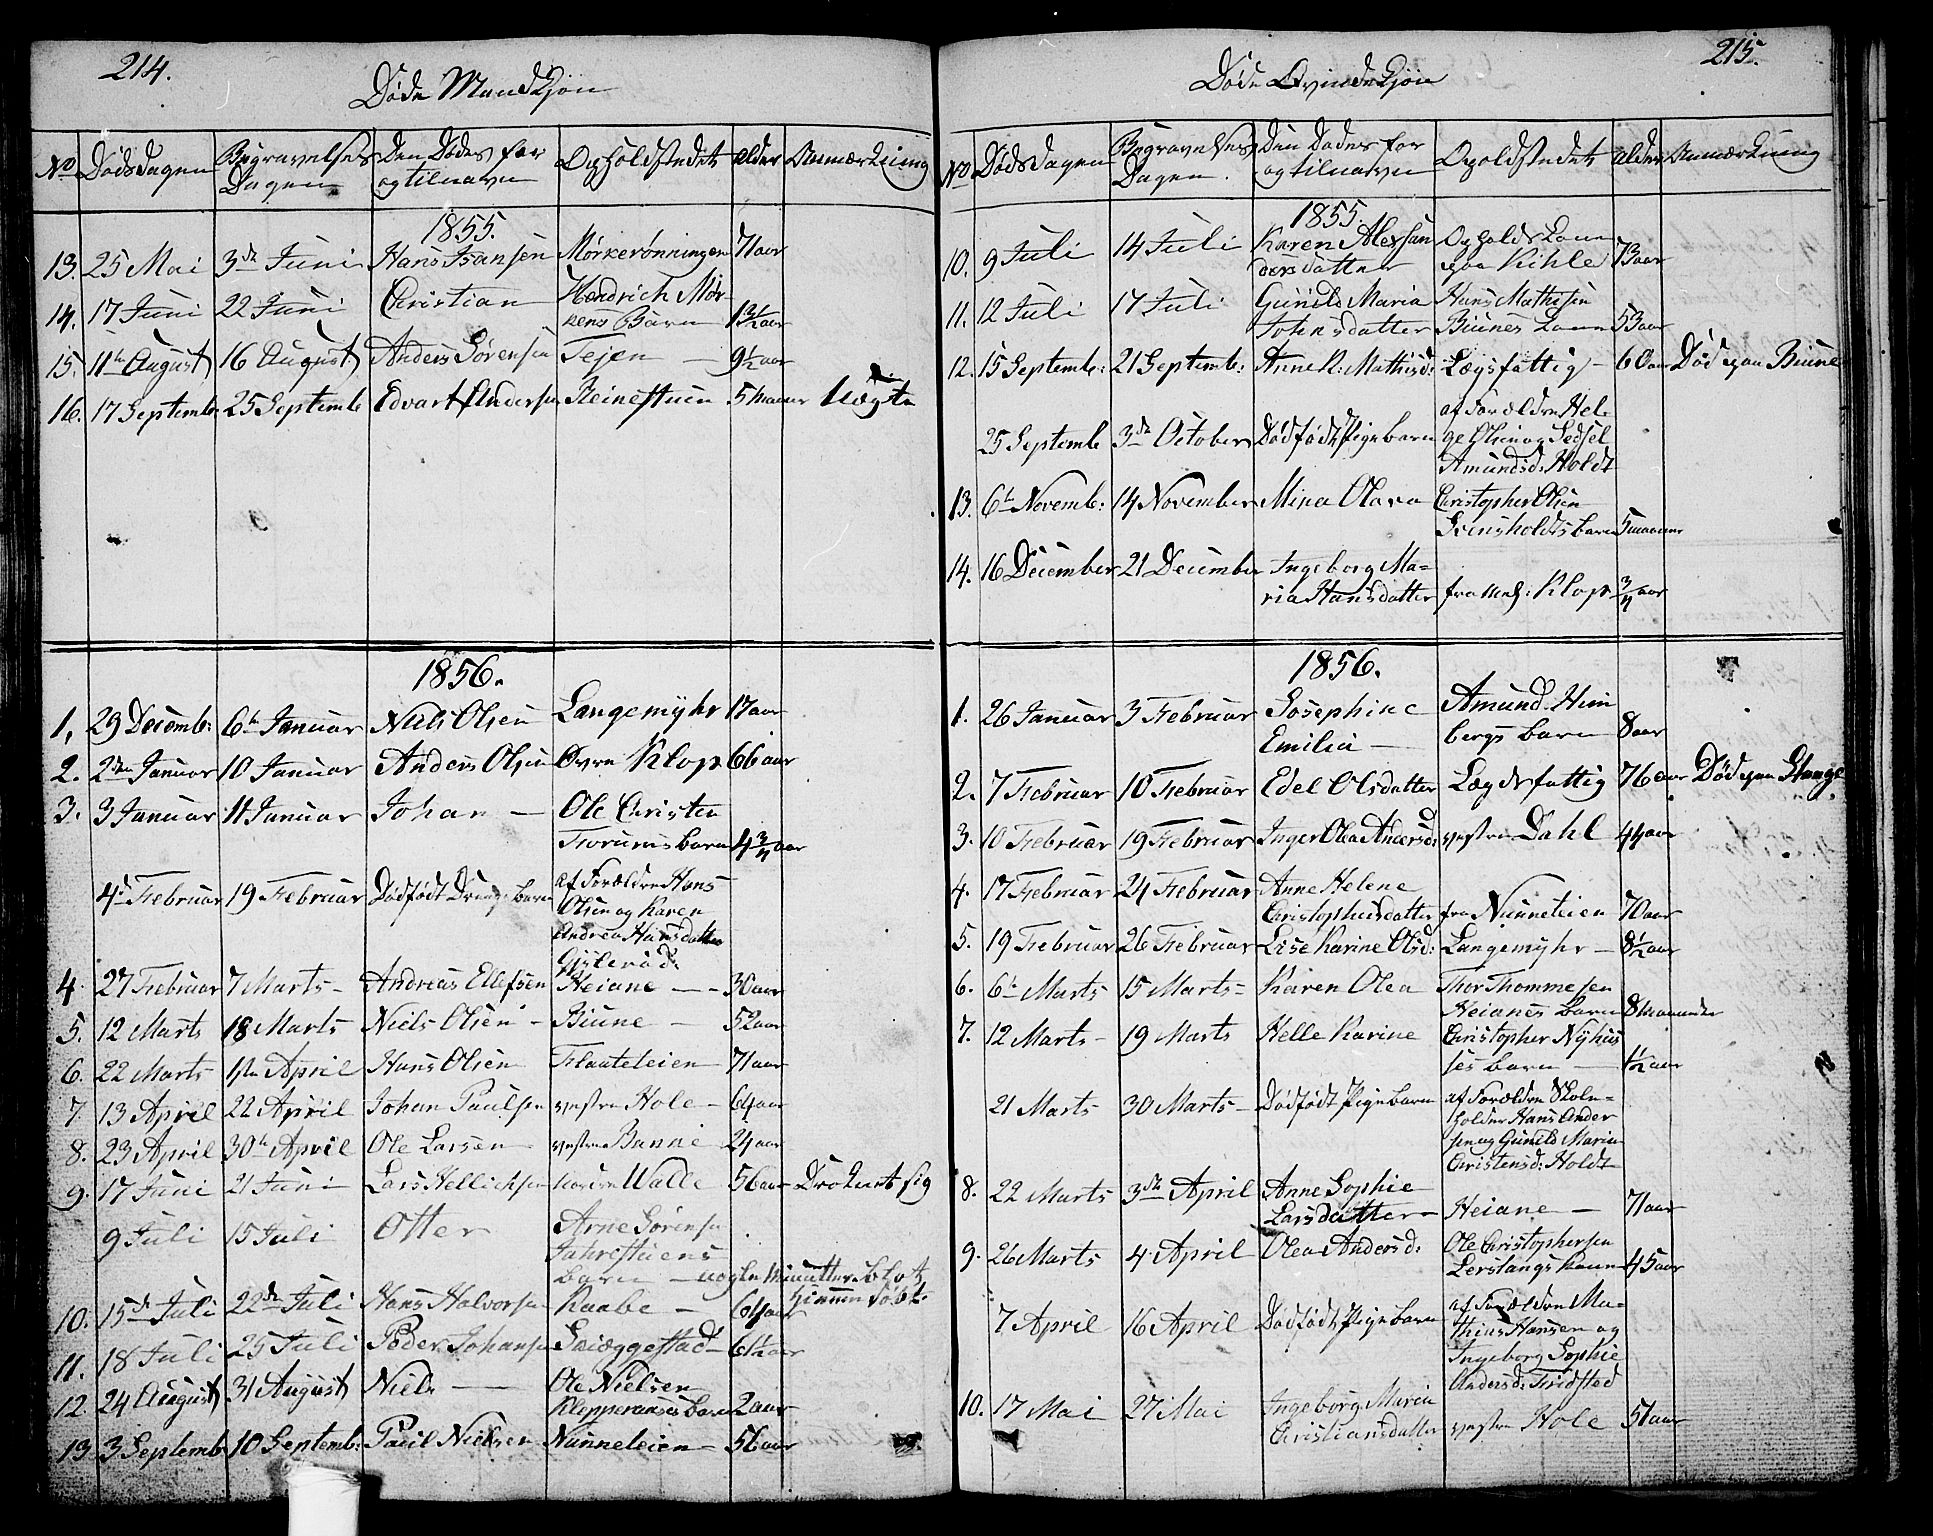 214.
Døde Mandkjøn
No Dødsdagen Begravelses Dagen Den Dødes for og tilnavn Opholdstedet alder Anmærkning
1855.
13. 25 Mai 3de Juni Hans Isansen Mørkerønningen 71 aar
14. 17 Juni 22 Juni Christian Hendrich Mør-
kens Barn 1 3/4 aar
15. 11te August 16 August Anders Sørensen Tejen — 9 1/2 aar
16. 17 Septembr 25 Septemb Edvart Andersen Steinestuen 5 maaner Uægte
1856.
1, 29 Decemb: 6te Januar Niels Olsen Langemyhr 17 aar
2. 2den Januar 10 Januar Anders Olsen Øvre Klop 66 aar
3. 3 Januar 11 Januar Johan — Ole Christen
Trorums barn 4 3/4 aar
4de Februar 19 Februar Dødfødt Drengebarn af Forældre Hans
Olsen og Karen
Andrea Hansdatter
Gislerød:
4. 27 Februar 7 Marts - Andreas Ellefsen Heiane - - 30 aar
5. 12 Marts 18 Marts Niels Olsen - Biune — 52 aar
6. 22 Marts 1ste April Hans Olsen Flaateleien 71 aar
7. 13 April 22 April Johan Paulsen vestre Hole - 64 aar
8. 23 April 30te April Ole Larsen — vestre Banne 24 aar
9. 17 Juni 21 Juni Lars Hellichsen nordre Walle 56 aar Droknet sig
9 Juli 15 Juli Otter Arne Sørensen
Jahrestuens
barn — nogle Minutter blot
hjemmedøbt.
10. 15de Juli 22de Juli Hans Halvorsen Raabe — 64 aar
11. 18 Juli 25 Juli Peder Johansen Skiæggestad - 61 1/2 aar
12. 24 August 31 August Niels — Ole Nielsen
Klopperanses barn 2 aar
13. 3 Septemb 10 Septemb: Paul Nielsen Nunneleien — 56 aar
215.
Døde Qvindekjøn
No Dødsdagen Begravelses Dagen. Den Dødes for og tilnavn Opholdstedet alder Anmærkning
1855.
10. 9 Juli 14 Juli Karen Alexsan
dersdatter Opholds Kone
paa Kihle 73 aar
11. 12 Juli 17 Juli Gunild Maria
Johnsdatter Hans Mathisen
Biunes kone 53 aar
12. 15 Septemb: 21 Septemb: Anne K: Mathisd: Lægsfattig — 60 aar Død paa Biune
25 Septemb 3de October Dødfødt Pigebarn af Forældre Hel-
ge Olsen og Sedsel
Amundsd: Holdt
13. 6te Novemb: 14 November Mina Olava Christopher Olsen
Svensholdts barn 5 maaner
14. 16 December 21 December Ingeborg Ma=
ria Hansdatter fra Klop 3/4 aar
1856.
1. 26 Januar 3 Februar Josephine
Emilia — Amund Him
bergs barn 8 aar
2. 7 Februar 10 Februar Edel Olsdatter Lægdsfattig 76 aar Død paa Stange
3. 10 Februar 19 Februar Inger Olea Andersd: vestre Dahl 44 aar
4. 17 Februar 24 Februar Anne Helene
Christophersdatter fra Nunneleien 70 aar
5. 19 Februar 26 Februar Lise Karine Olsd: Langemyhr — 8 1/2 aar
6. 6te Marts 15 Marts - Karen Olea Thor Thommesen
Heianes barn 8 maaneder
7. 12 Marts - 19 Marts Helle Karine Christopher Nyhus
ses barn — 1 1/2 aar
21 Marts 30 Marts - Dødfødt Pigebarn af Forældre Skole-
holder Hans Ander
sen og Gunild Maria
Christensd: Holdt
8. 22 Marts 3die April Anne Sophie
Larsdatter — Heiane — 71 aar
9. 26 Marts 4. April Olea Andersd: Ole Christophersen
Lerstangs kone 45 aar
7 April 16 April Dødfødt Pigebarn af Forældre Ma=
thias Hansen og
Ingeborg Sophie
Andersd: Fridstad
10. 17 Mai 27 Mai Ingeborg Maria
Christiansdatter vestre Hole 57 aar